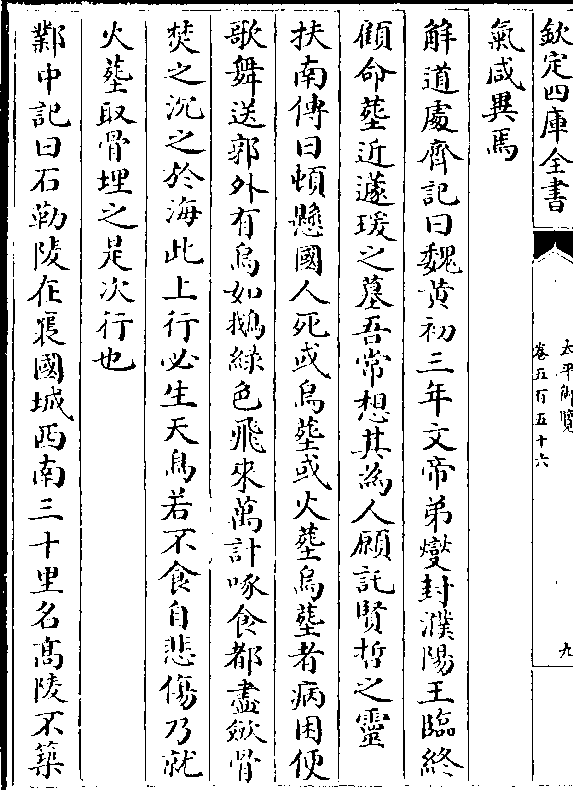 欽定四庫全書
太平御覽
卷五百五十六
九
氣咸異焉
解道處齊記曰魏黄初三年文帝弟燮封濮陽王臨終
顧命塟近蘧瑗之墓吾常想其為人願託賢哲之靈
扶南傳曰頓懸國人死或鳥塟或火塟鳥塟者病困便
歌舞送郭外有鳥如鵝緑色飛來萬計啄食都盡斂骨
焚之沉之於海此上行必生天鳥若不食自悲傷乃就
火塟取骨埋之是次行也
鄴中記曰石勒陵在襄國城西南三十里名髙陵不築